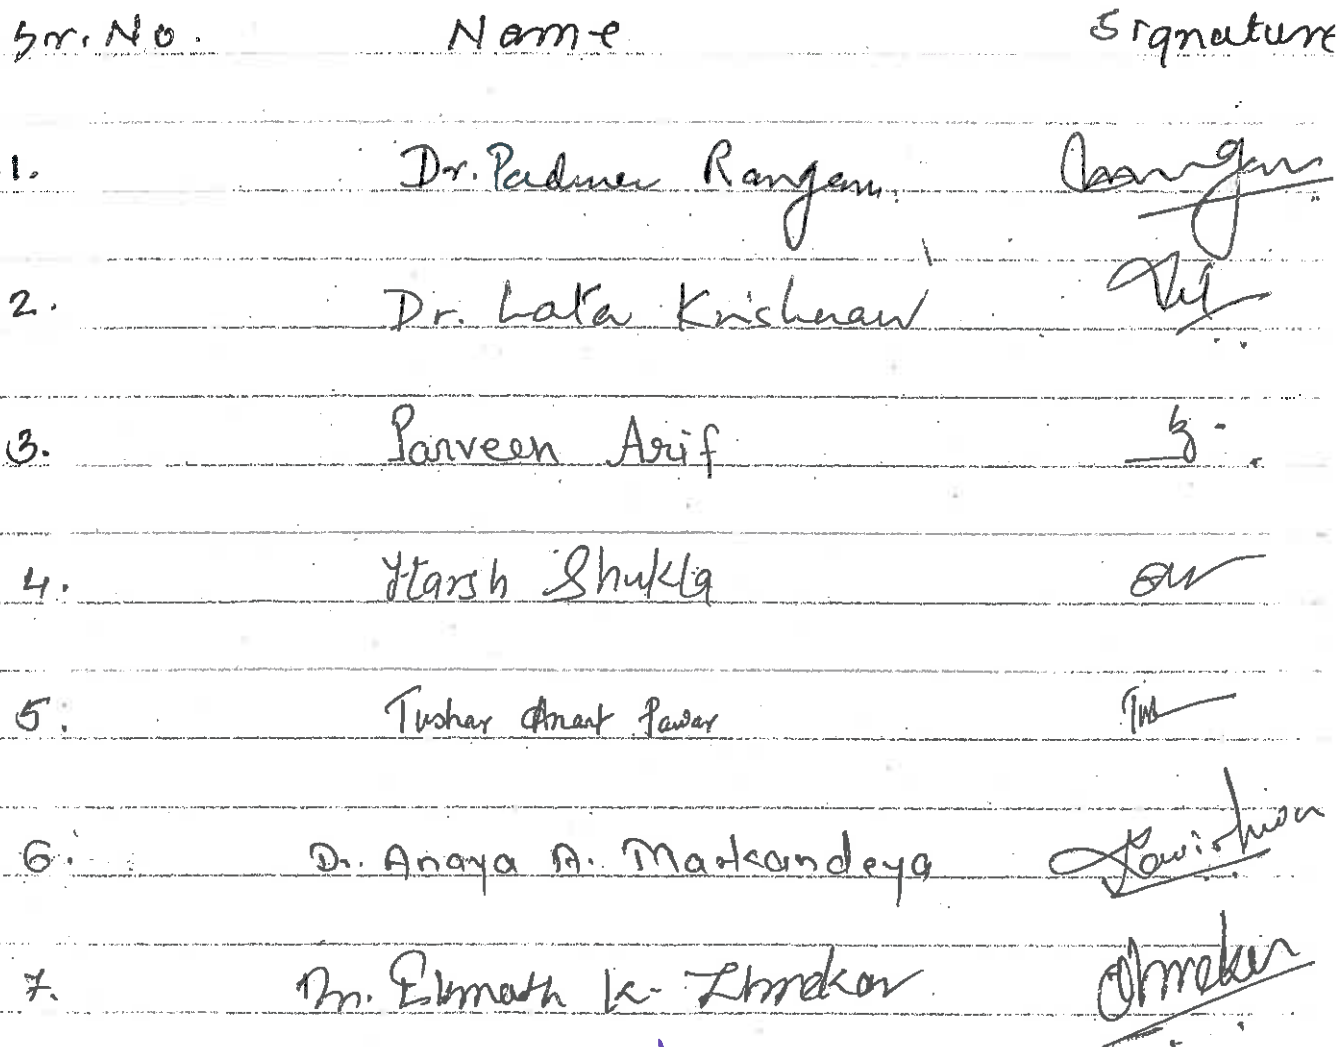 Sr. No. Name Signature
1. Dr. Padma Rangan
2. Dr. Lata Krishnan
3. Parveen Arif
4. Harsh Shukla
5. Tushar Anant Pawar
6. Dr. Anaya A. Markandeya
7. Dr. Eknath K.